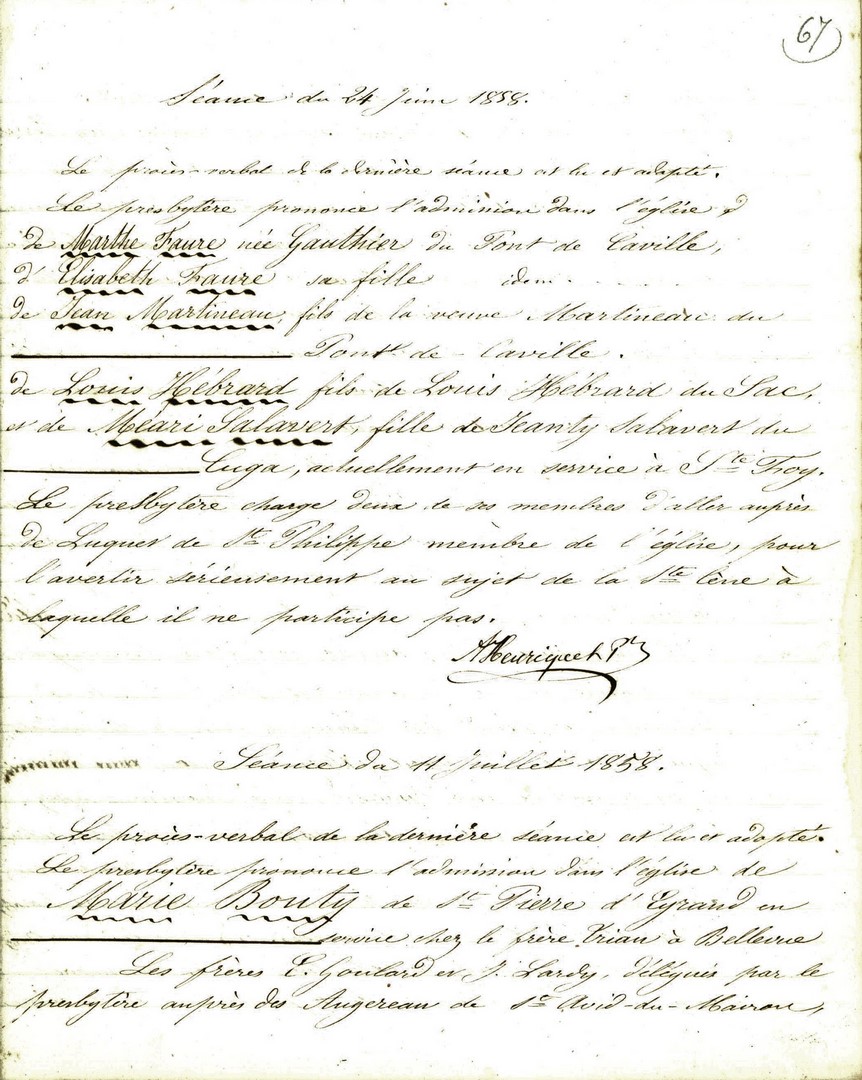 67
Séance du 24 Juin 1858.
Le procès-verbal de la dernière séance est lu et adopté.
Le presbytère prononce l'admission dans l'église d
de Marthe Faure née Gauthier du Pont de Caville,
d'Elisabeth Faure sa fille idem.
de Jean Martineau, fils de la veuve Martineau du
Pont de Caville.
de Louis Hébrard fils de Louis Hébrard du Sac,
et de Meari Salavert, fille de Jeanty Salavert du
Cuga, actuellement en service à Ste Foy.
Le presbytère charge deux de ses membres d'aller auprès
de Luquet de St Philippe membre de l'église, pour
l'avertir sérieusement au sujet de la Ste Cène à
laquelle il ne participe pas.
AHenriquet Pr
Séance du 11 Juillet 1858.
Le procès-verbal de la dernière séance est lu et adopté.
Le presbytère prononce l'admission dans l'église de
Marie Bouty de St Pierre d'Eyrand en
service chez le frère Trian à Bellevue
Les frères E. Goulard et J. Lardy, délégués par le
presbytère auprès des Angereau de St Avid-du-Moiron,